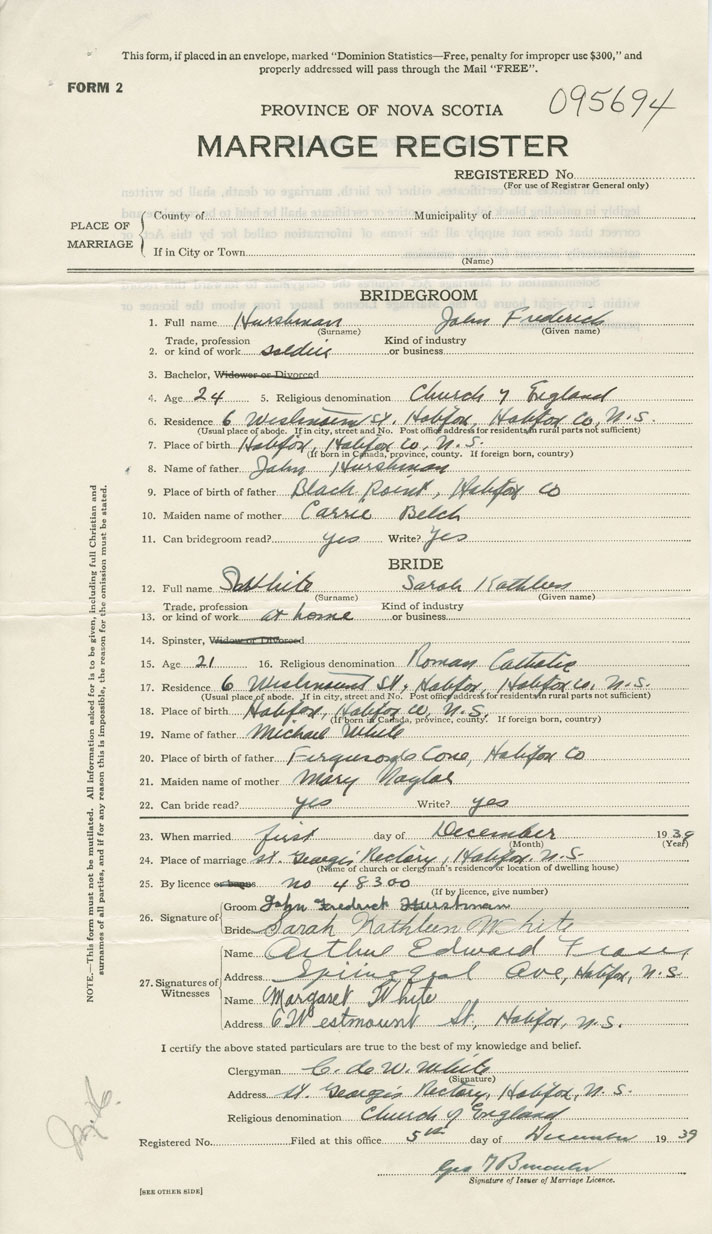 This form, if placed in an envelope, marked "Dominion Statistics—Free, penalty for improper use $300," and
properly addressed will pass through the Mail "FREE".
FORM 2
095694
PROVINCE OF NOVA SCOTIA
MARRIAGE REGISTER
REGISTERED No.
(For use of Registrar General only)
PLACE OF MARRIAGE
County of Municipality of
If in City or Town
(Name)
BRIDEGROOM
1. Full name Hurshman John Frederick
(Surname) (Given name)
2. Trade, profession or kind of work soldier Kind of industry or business
3. Bachelor, Widower or Divorced
4. Age 24 5. Religious denomination Church of England
6. Residence 6 Westmount St. Halifax, Halifax Co, N.S.
(Usual place of abode. If in city, street and No. Post office address for residents in rural parts not sufficient)
7. Place of birth Halifax, Halifax Co, N.S.
(If born in Canada, province, county. If foreign born, country)
8. Name of father John Hurshman
9. Place of birth of father Black Point, Halifax Co
10. Maiden name of mother Carrie Belch
11. Can bridegroom read? yes Write? yes
BRIDE
12. Full name White Sarah Kathleen
(Surname) (Given name)
13. Trade, profession or kind of work at home Kind of industry or business
14. Spinster, Widow or Divorced
15. Age 21 16. Religious denomination Roman Catholic
17. Residence 6 Westmount St, Halifax, Halifax Co, N.S.
(Usual place of abode. If in city, street and No. Post office address for residents in rural parts not sufficient)
18. Place of birth Halifax, Halifax Co, N.S.
(If born in Canada, province, county. If foreign born, country)
19. Name of father Michael White
20. Place of birth of father Ferguson's Cove, Halifax Co
21. Maiden name of mother Mary Naylor
22. Can bride read? yes Write? yes
23. When married first day of December 1939
(Month) (Year)
24. Place of marriage St. George's Rectory, Halifax, N.S.
(Name of church or clergyman's residence or location of dwelling house)
25. By licence or banns no 48300
(If by licence, give number)
26. Signature of
Groom John Fredrick Hurshman
Bride Sarah Kathleen White
27. Signatures of Witnesses
Name Arthur Edward Fraser
Address Ave, Halifax, N.S
Name Margaret White
Address 6 Westmount St, Halifax, N.S.
I certify the above stated particulars are true to the best of my knowledge and belief.
Clergyman C. de W. White
(Signature)
Address St. George's Rectory, Halifax, N.S.
Religious denomination Church of England
Registered No. Filed at this office 5th day of December 1939
Signature of Issuer of Marriage Licence.
[SEE OTHER SIDE]
NOTE.—This form must not be mutilated. All information asked for is to be given, including full Christian and
surnames of all parties, and if for any reason this is impossible, the reason for the omission must be stated.